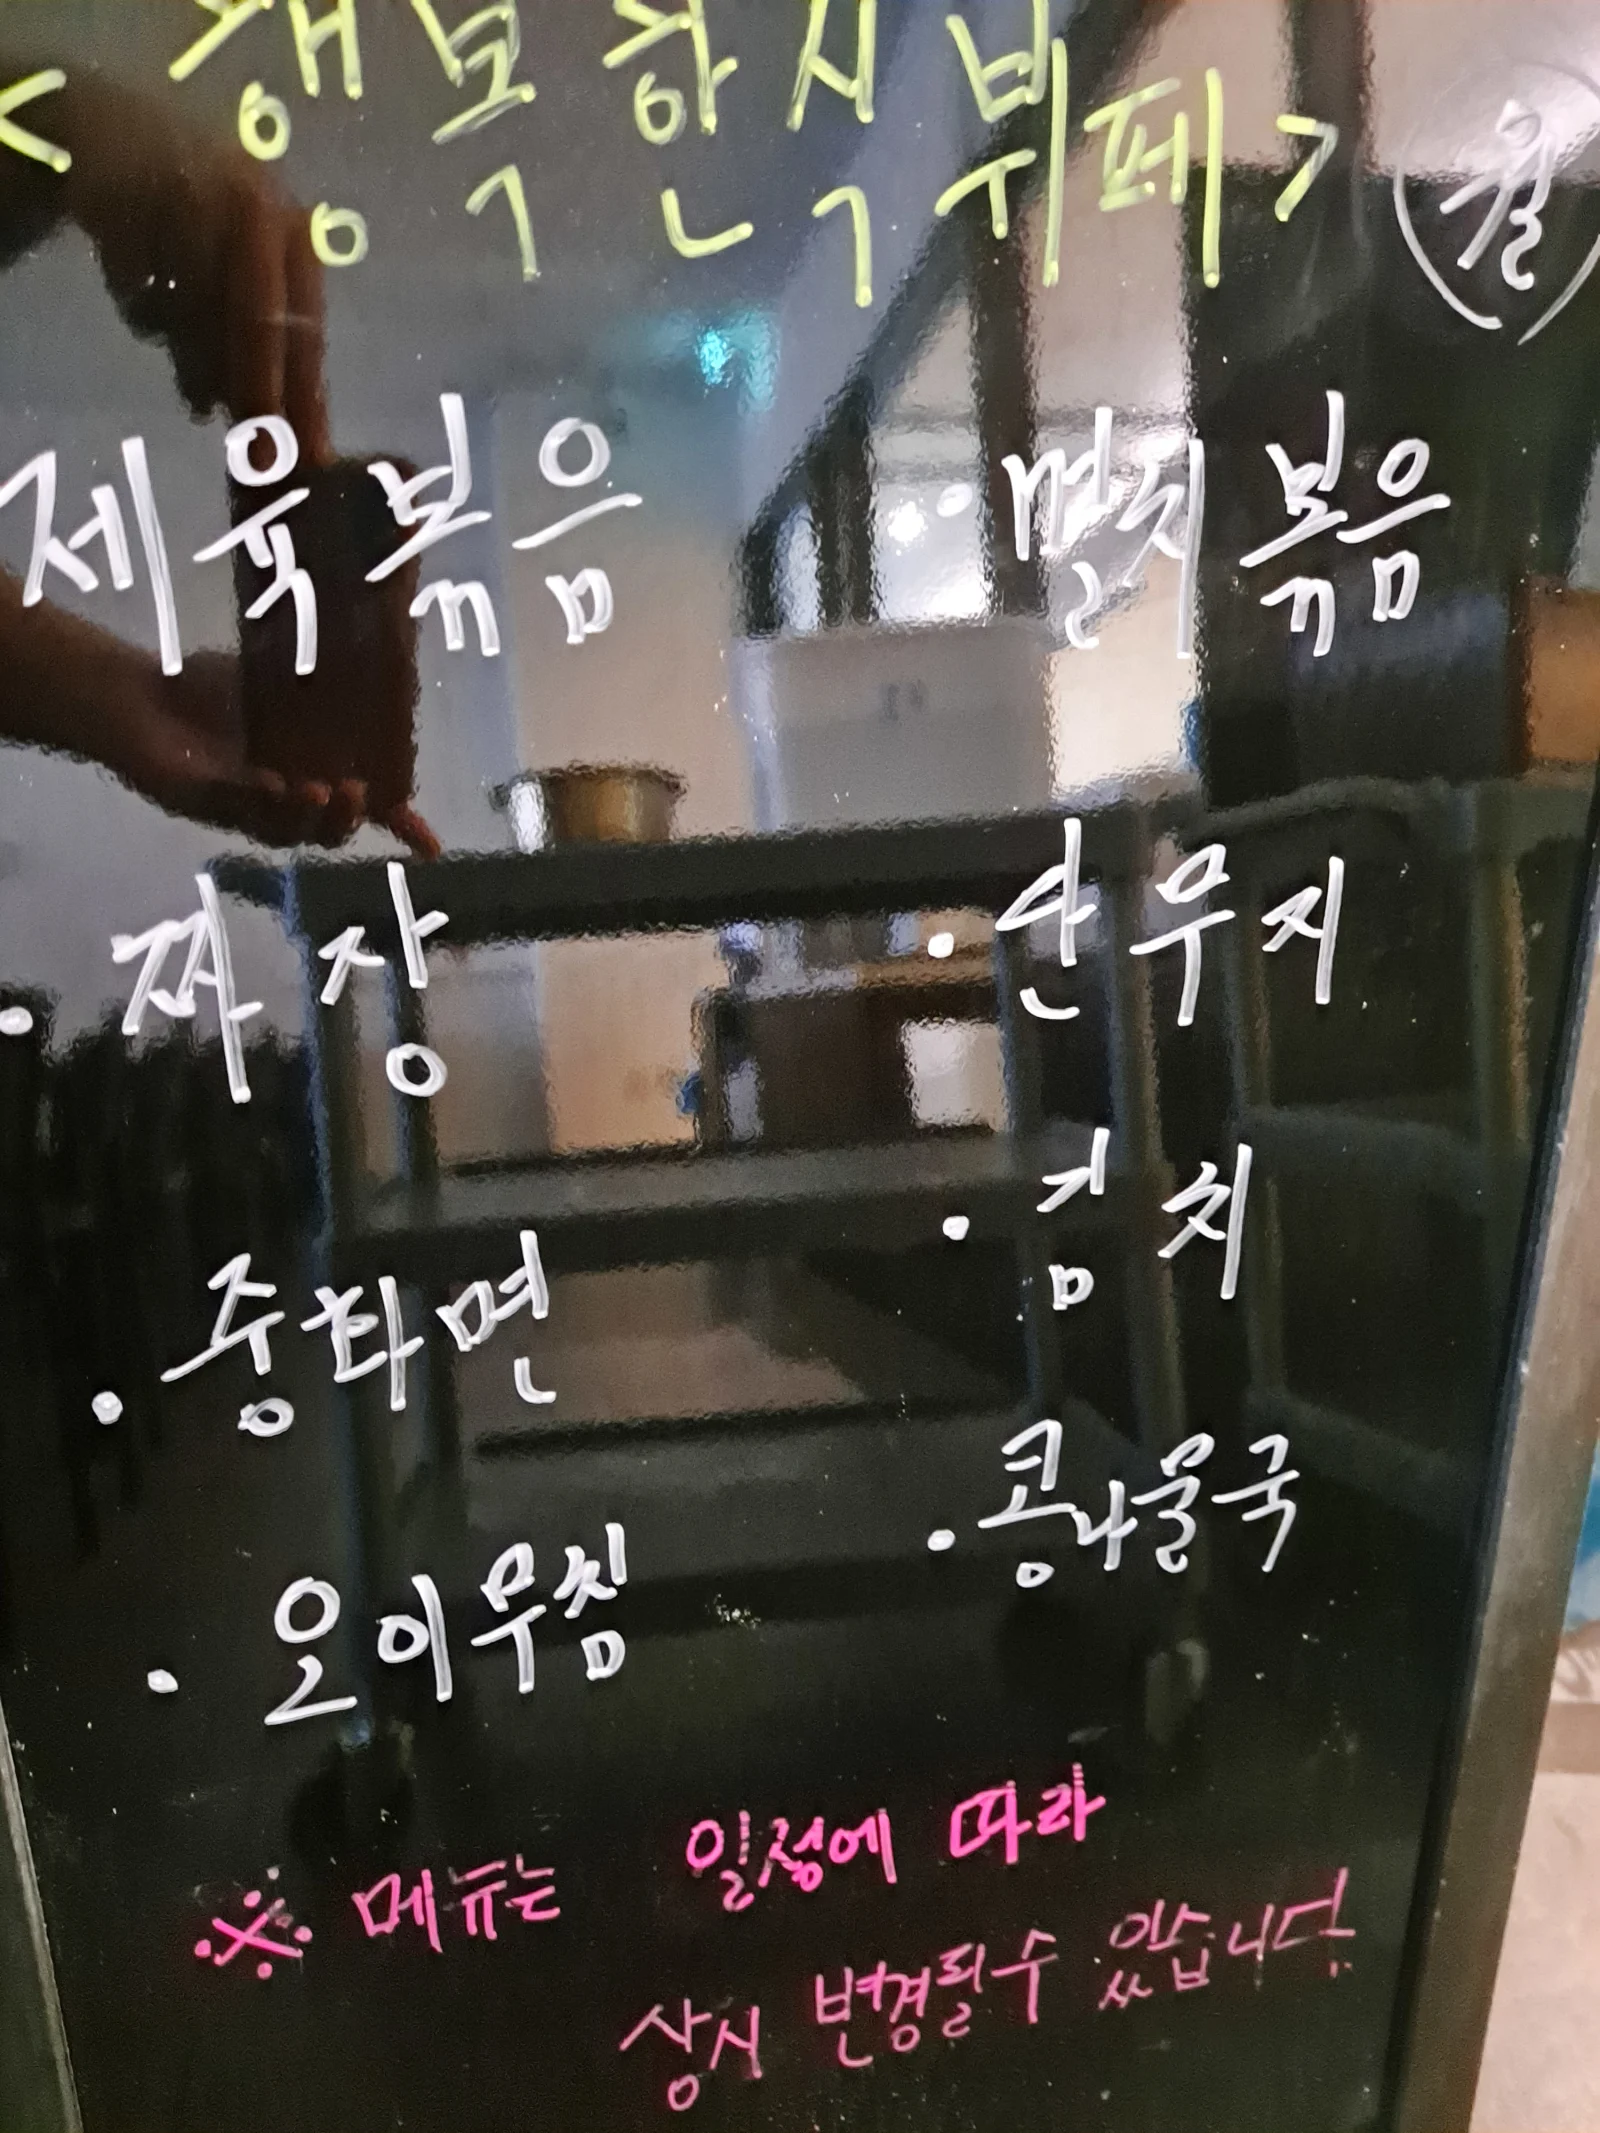 <행복한식뷔페> 월
제육볶음
· 짜장
· 중화면
· 오이무침
· 멸치볶음
· 단무지
· 김치
· 콩나물국
※ 메뉴는 일정에 따라
상시 변경될수 있습니다.